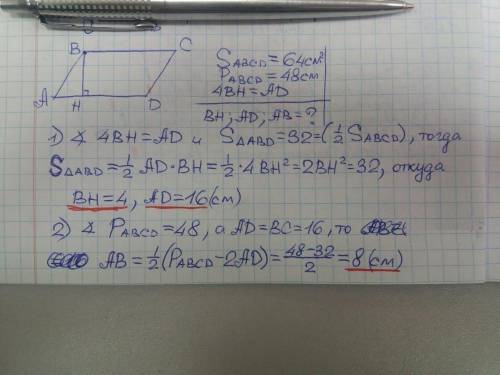 B C
A H D
S_ABCD = 64см²
P_ABCD = 48см
4BH = AD
BH; AD; AB = ?
1) ∡ 4BH = AD и S_ΔABD = 32 = (½ S_ABCD), тогда
S_ΔABD = ½ AD · BH = ½ · 4BH² = 2BH² = 32, откуда
BH = 4, AD = 16 (см)
2) ∡ P_ABCD = 48, а AD = BC = 16, то
AB = ½ (P_ABCD − 2AD) = (48 − 32)/2 = 8 (см)